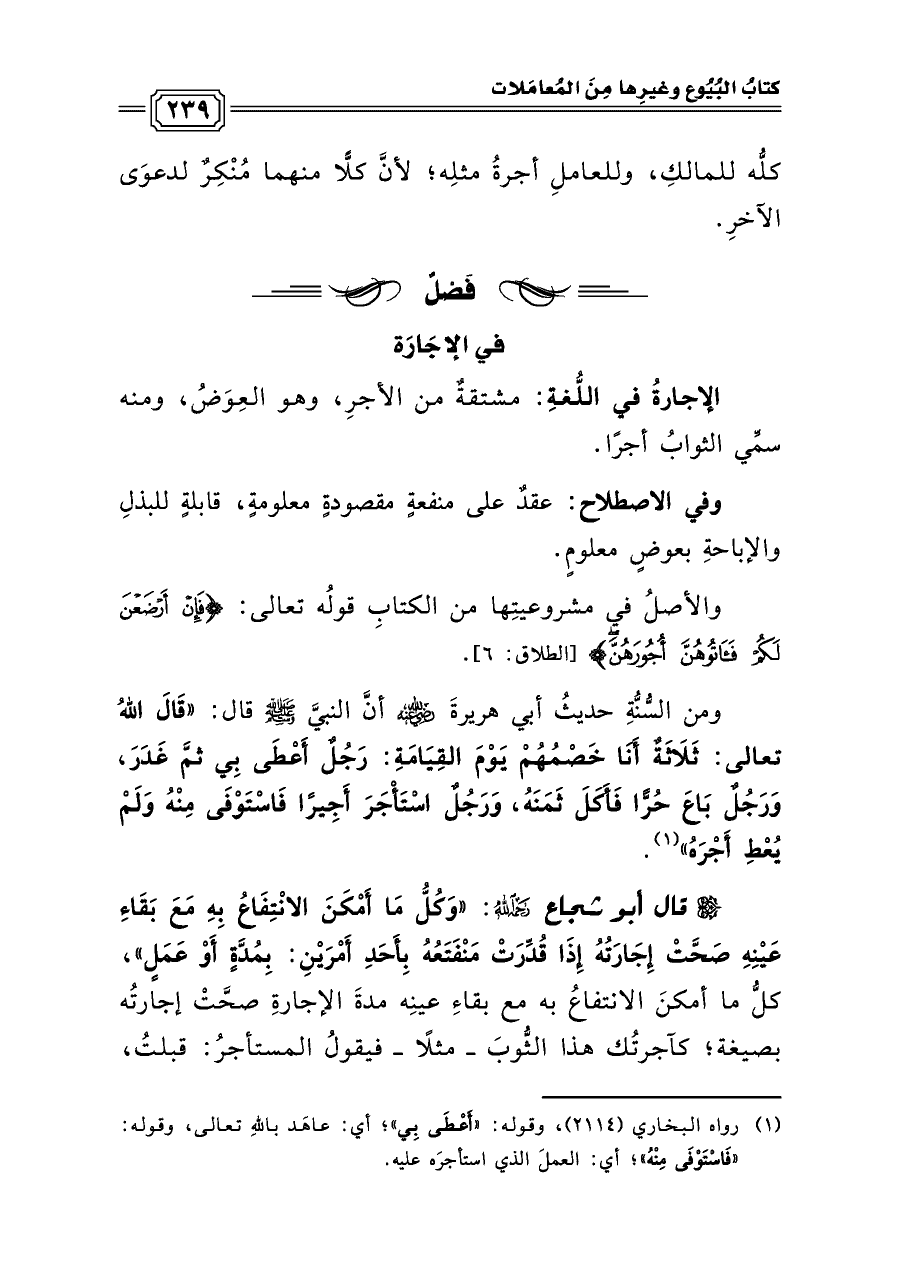 كتابُ البُيُوع وغيرِها مِنَ المُعامَلات
٢٣٩
كلُّه للمالكِ، وللعاملِ أجرةُ مثلِه؛ لأنَّ كلًّا منهما مُنْكِرٌ لدعوَى
الآخرِ.
فَصْلٌ
في الإجَارَة
الإجارةُ في اللُّغةِ: مشتقةٌ من الأجرِ، وهو العِوَضُ، ومنه
سمِّي الثوابُ أجرًا.
وفي الاصطلاح: عقدٌ على منفعةٍ مقصودةٍ معلومةٍ، قابلةٍ للبذلِ
والإباحةِ بعوضٍ معلومٍ.
والأصلُ في مشروعيتِها من الكتابِ قولُه تعالى: ﴿فَإِنۡ أَرۡضَعۡنَ
لَكُمۡ فَـَٔاتُوهُنَّ أُجُورَهُنَّۖ﴾ [الطلاق: ٦].
ومن السُّنَّةِ حديثُ أبي هريرةَ رضي الله عنه أنَّ النبيَّ ﷺ قال: «قَالَ اللهُ
تعالى: ثَلَاثَةٌ أَنَا خَصْمُهُمْ يَوْمَ القِيَامَةِ: رَجُلٌ أَعْطَى بِي ثمَّ غَدَرَ،
وَرَجُلٌ بَاعَ حُرًّا فَأَكَلَ ثَمَنَهُ، وَرَجُلٌ اسْتَأْجَرَ أَجِيرًا فَاسْتَوْفَى مِنْهُ وَلَمْ
يُعْطِ أَجْرَهُ»(١).
قال أبو شجاع رحمه الله: «وَكُلُّ مَا أَمْكَنَ الانْتِفَاعُ بِهِ مَعَ بَقَاءِ
عَيْنِهِ صَحَّتْ إِجَارَتُهُ إِذَا قُدِّرَتْ مَنْفَتَعُهُ بِأَحَدِ أَمْرَيْنِ: بِمُدَّةٍ أَوْ عَمَلٍ»،
كلُّ ما أمكنَ الانتفاعُ به مع بقاءِ عينِه مدةَ الإجارةِ صحَّتْ إجارتُه
بصيغة؛ كآجرتُك هذا الثُّوبَ ـ مثلًا ـ فيقولُ المستأجرُ: قبلتُ،
(١) رواه البخاري (٢١١٤)، وقوله: «أَعْطَى بِي»؛ أي: عاهَد باللهِ تعالى، وقوله:
«فَاسْتَوْفَى مِنْهُ»؛ أي: العملَ الذي استأجرَه عليه.